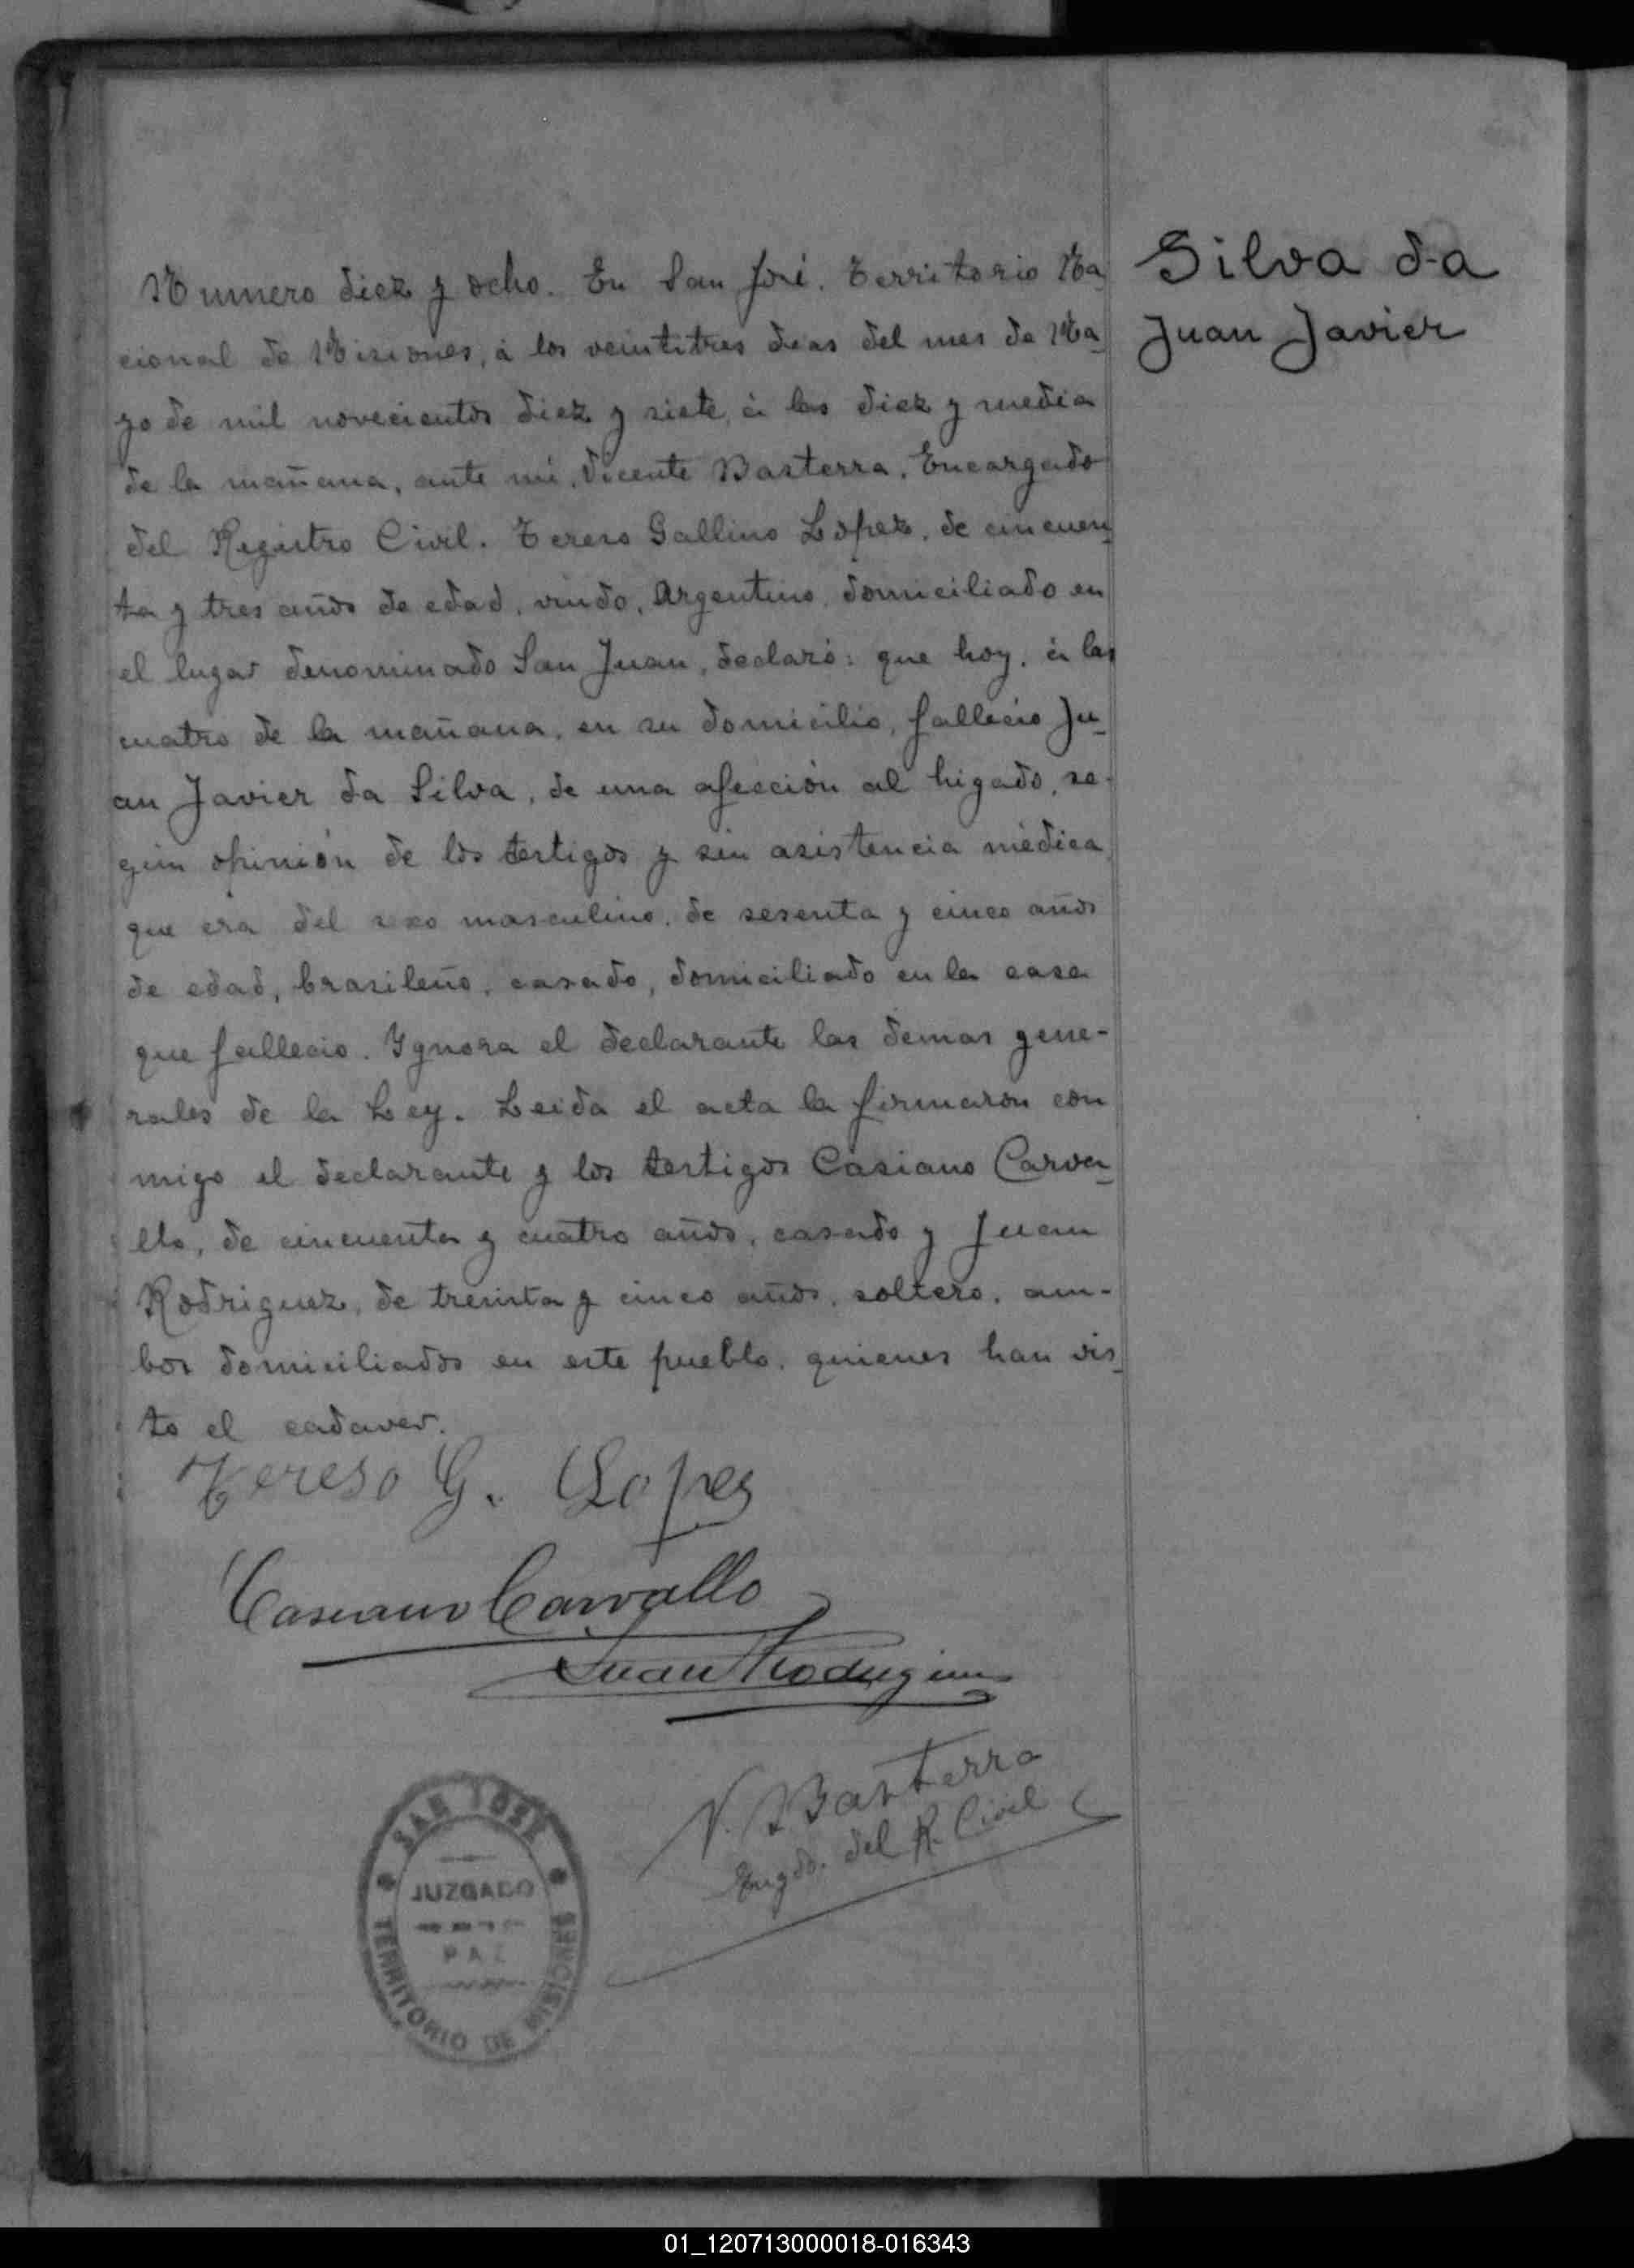 Silva da
Juan Javier
Numero diez y ocho. En San José. Territorio Na
cional de Misiones, á los veintitres dias del mes de Ma
yo de mil novecientos diez y siete, á las diez y media
de la mañana, ante mi, Vicente Basterra, Encargado
del Registro Civil. Tereso Gallino López, de cincuen
ta y tres años de edad, viudo, Argentino, domiciliado en
el lugar denominado San Juan, declaró: que hoy, á las
cuatro de la mañana, en su domicilio, fallecio Ju
an Javier da Silva, de una afección al higado, se-
gún opinión de los testigos y sin asistencia médica
que era del sexo masculino, de sesenta y cinco años
de edad, brasileño, casado, domiciliado en la casa
que fallecio. Ygnora el declarante las demas gene-
rales de la Ley. Leida el acta la firmaron con
migo el declarante y los testigos Casiano Carva
llo, de cincuenta y cuatro años, casado y Juan
Rodriguez, de treinta y cinco años, soltero, am-
bos domiciliados en este pueblo, quienes han vis
to el cadaver.
Tereso G. Lopez
Casiano Carvallo
Juan Rodriguez
V. Basterra
Engdo. del R. Civil
SAN JOSE
JUZGADO
PAZ
TERRITORIO DE MISIONES
01_120713000018-016343